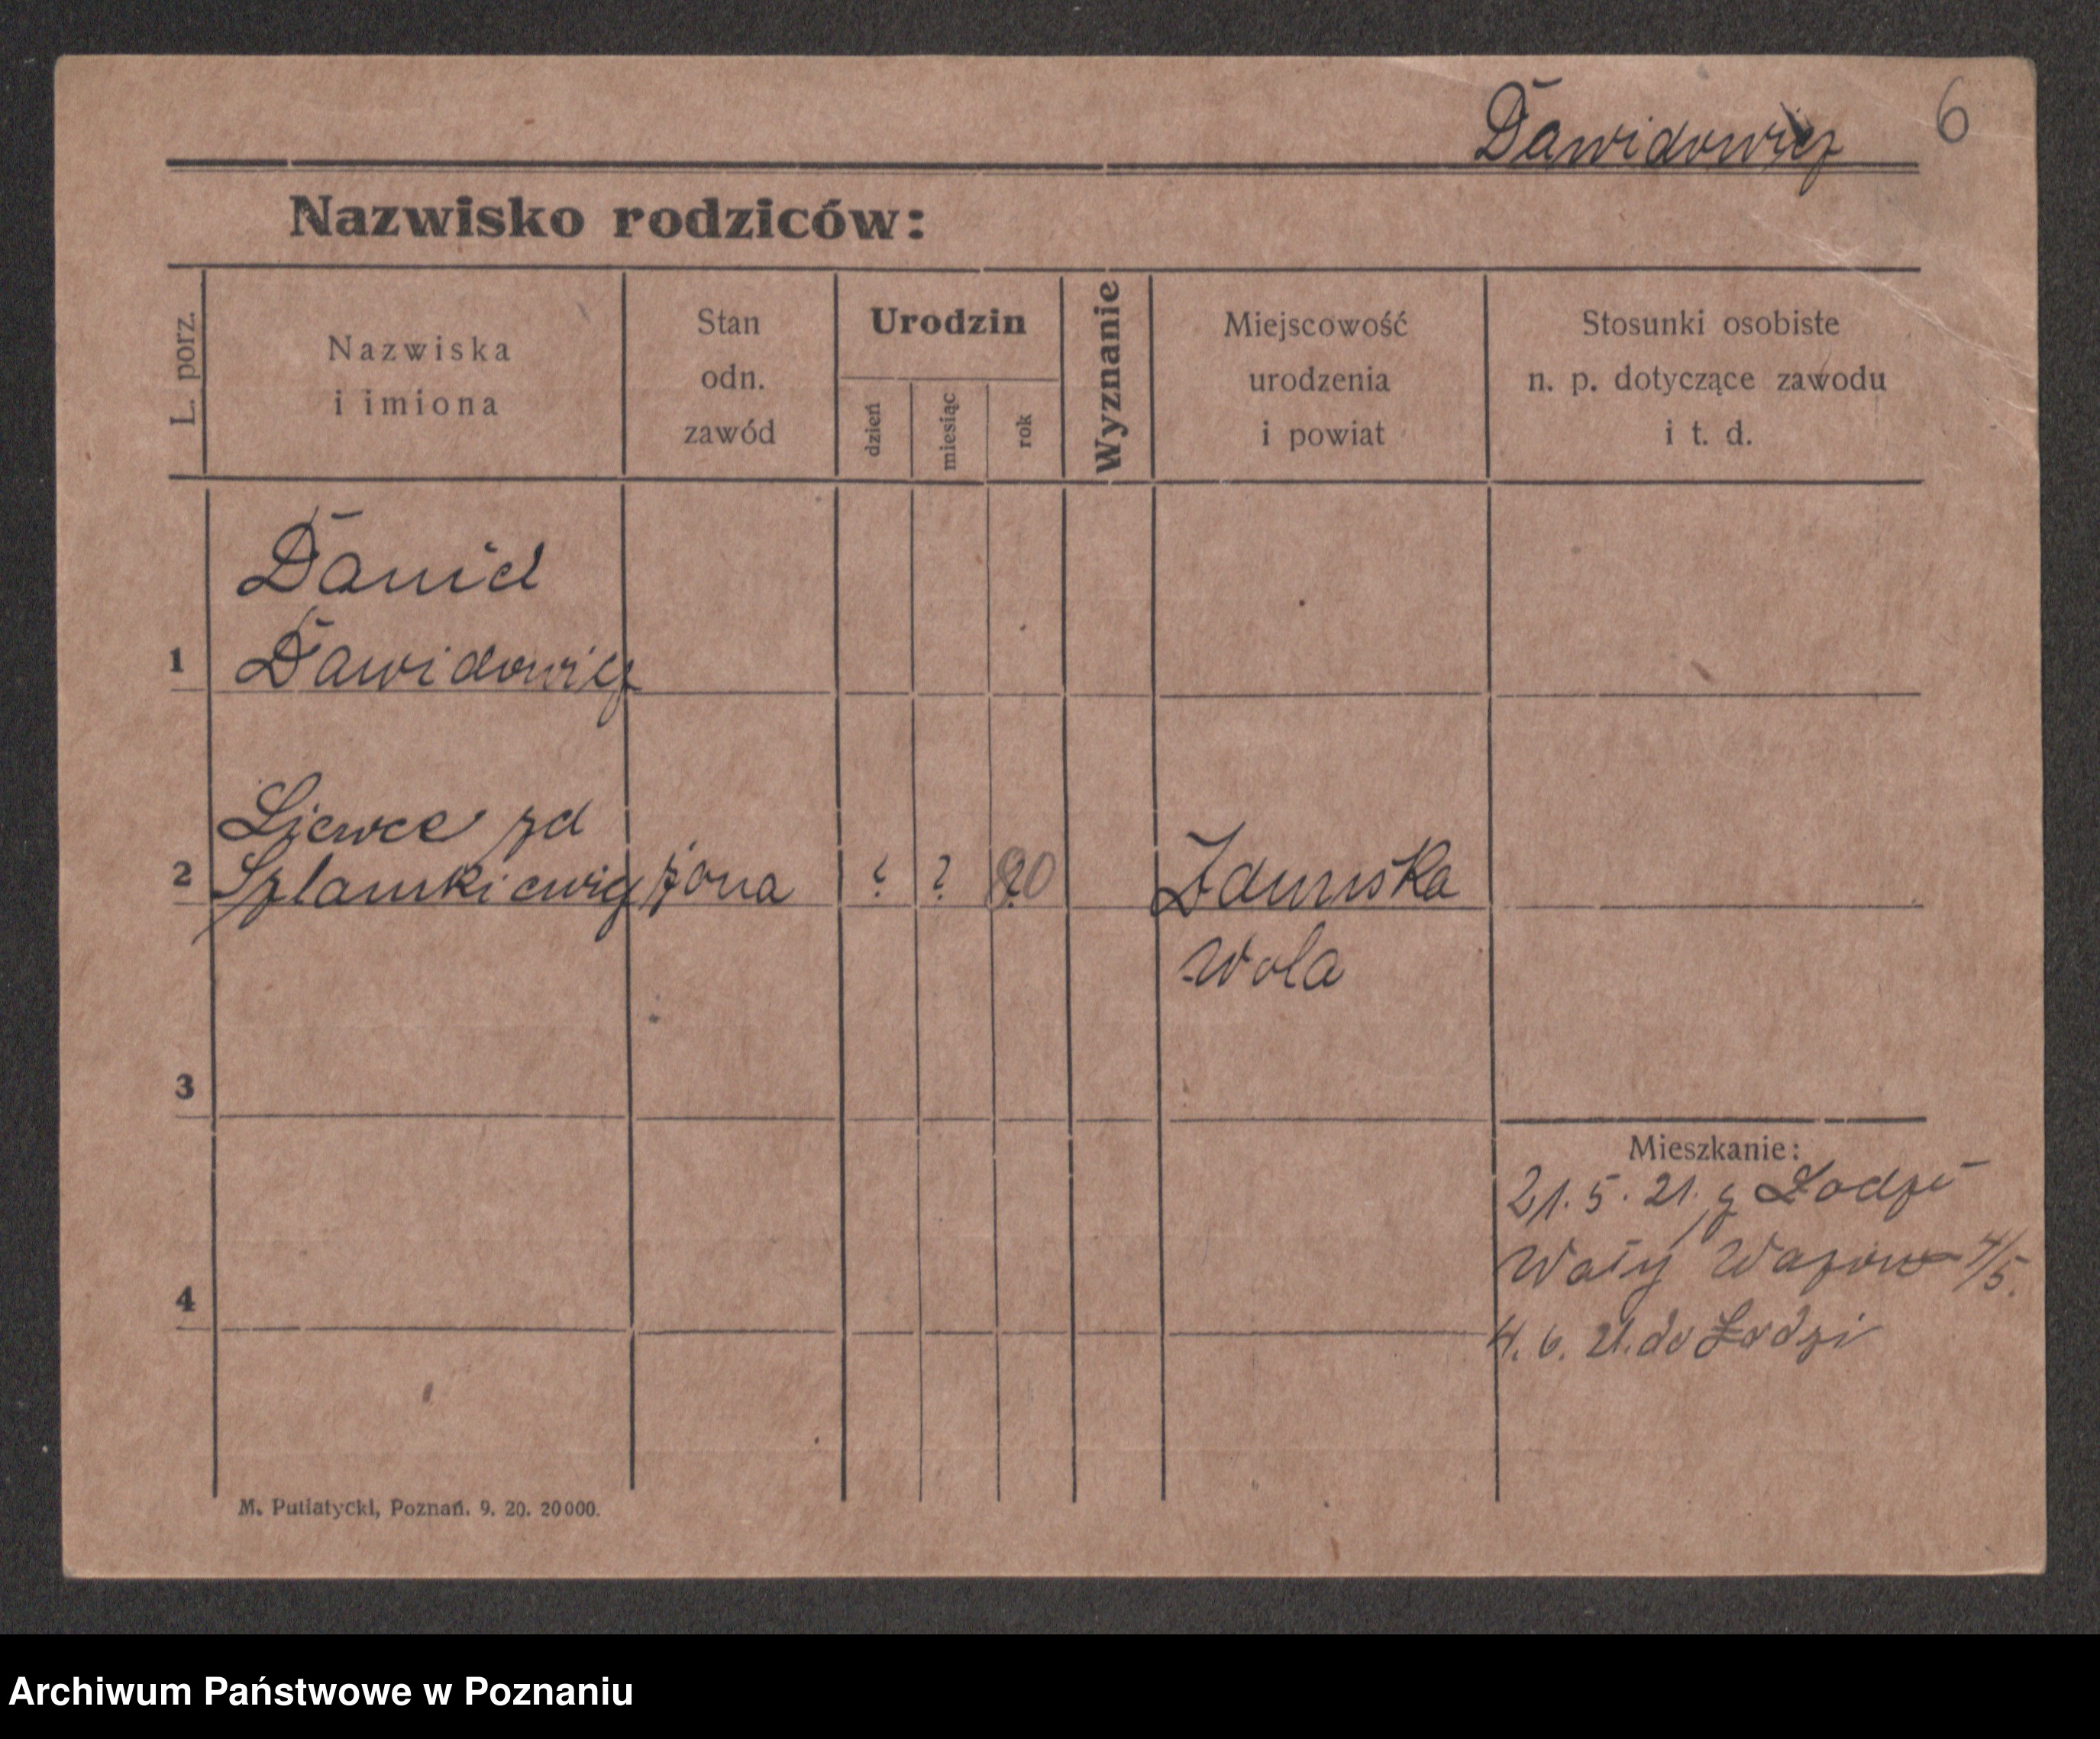 Dawidowicz
6
Nazwisko rodziców:
L. porz.
Nazwiska
i imiona
Stan
odn.
zawód
Urodzin
dzień
miesiąc
rok
Wyznanie
Miejscowość
urodzenia
i powiat
Stosunki osobiste
n. p. dotyczące zawodu
i t. d.
Daniel
1 Dawidowicz
zd
2 Szlamkiewicz żona ? ? Zduńska
Wola
3
Mieszkanie:
21. 5. 21. z Łodzi
Wały Wazow 4/5.
4
4. 6. 21. do Łodzi
M. Putiatycki, Poznań. 9. 20. 20000.
Archiwum Państwowe w Poznaniu